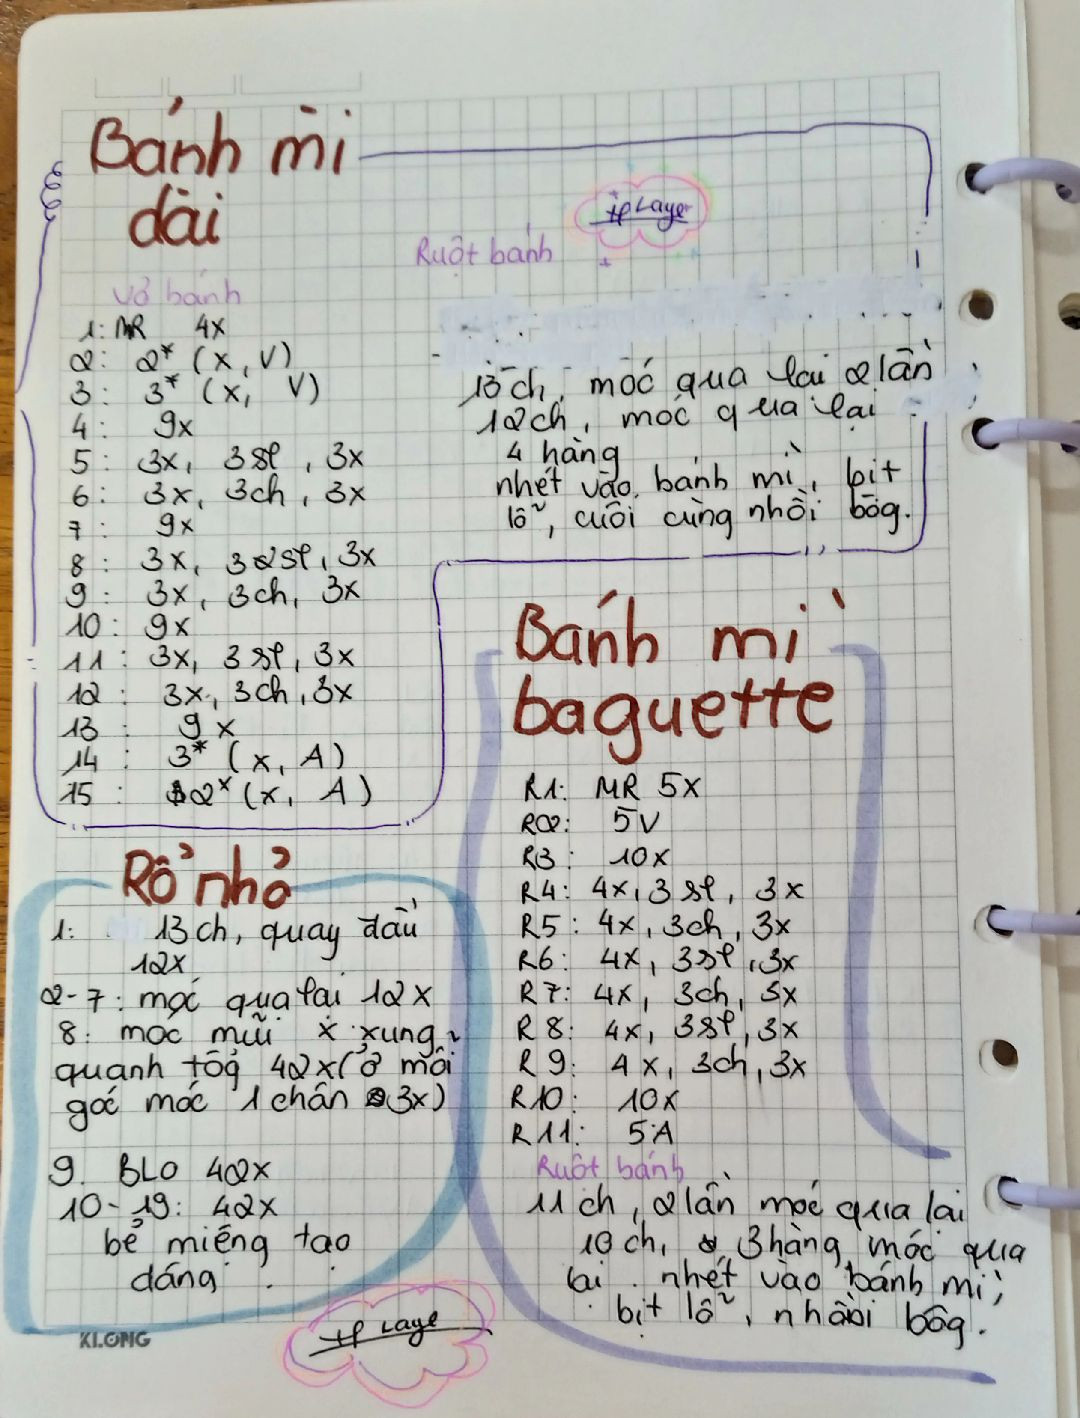 Bánh mì
dài
vỏ bánh
1: MR 4x
2: 2* (x, V)
3: 3* (x, V)
4: 9x
5: 3x, 3sl, 3x
6: 3x, 3ch, 3x
7: 9x
8: 3x, 3sl, 3x
9: 3x, 3ch, 3x
10: 9x
11: 3x, 3sl, 3x
12: 3x, 3ch, 3x
13: 9x
14: 3* (x, A)
15: 2* (x, A)
Ruột bánh
13ch, móc qua lại 2 lần
12ch, móc qua lại
4 hàng
nhét vào bánh mì, bịt
lỗ, cuối cùng nhồi bông.
Rổ nhỏ
1: 13ch, quay đầu
12x
2-7: móc qua lại 12x
8: móc mũi x xung
quanh tổng 42x (ở mỗi
góc móc 1 chân 3x)
9. BLO 42x
10-19: 42x
bẻ miếng tạo
dáng
Bánh mì
baguette
R1: MR 5x
R2: 5V
R3: 10x
R4: 4x, 3sl, 3x
R5: 4x, 3ch, 3x
R6: 4x, 3sl, 3x
R7: 4x, 3ch, 3x
R8: 4x, 3sl, 3x
R9: 4x, 3ch, 3x
R10: 10x
R11: 5A
Ruột bánh
11ch, 2 lần móc qua lại
10ch, 3 hàng móc qua
lại nhét vào bánh mì,
bịt lỗ, nhồi bông.
KLONG